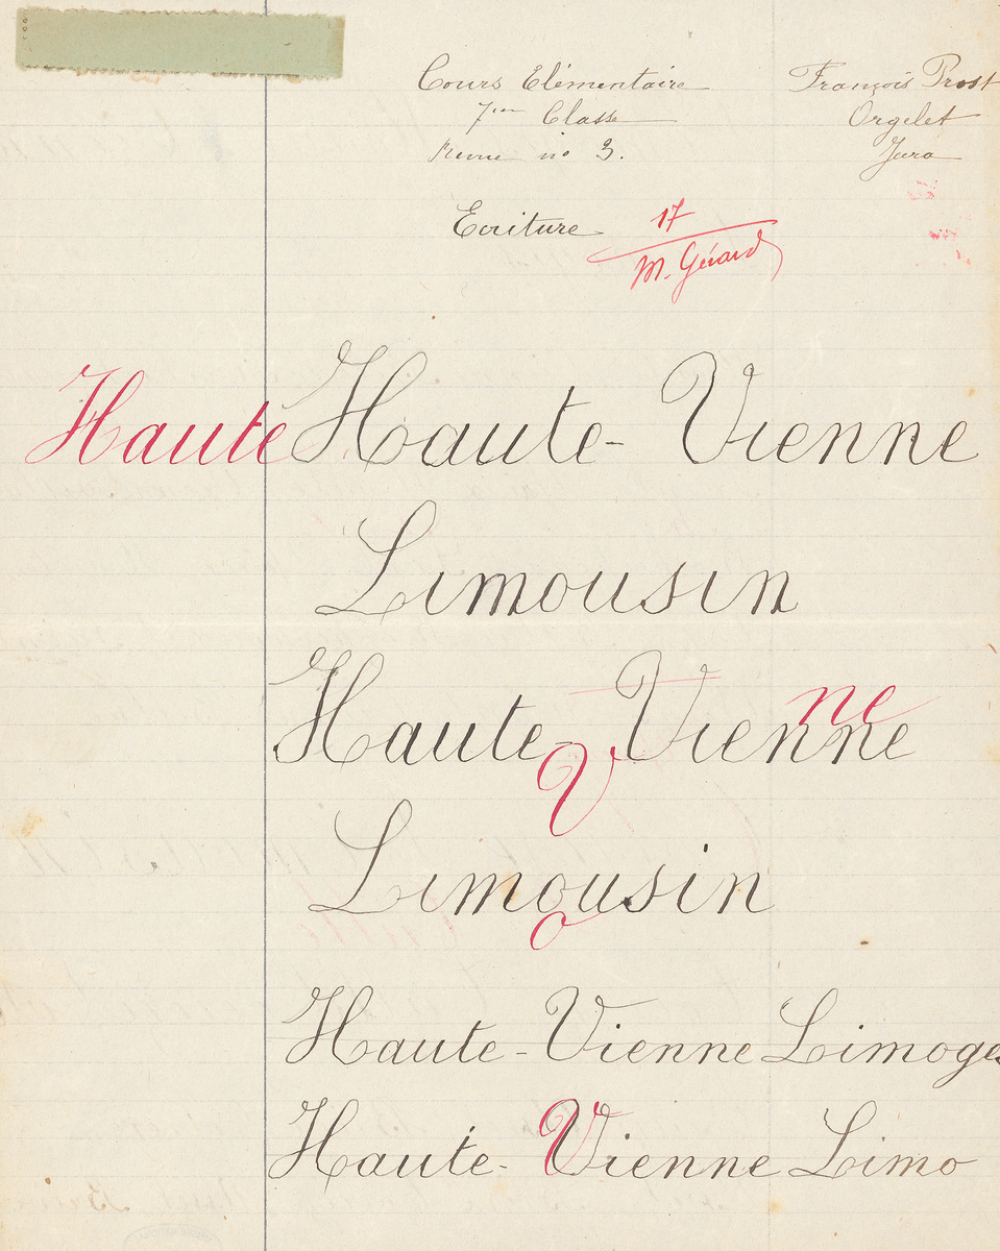 Cours Elémentaire François Prost
7me Classe Orgelet
no 3. Jura
Ecriture 17
M. Gérard
Haute Haute-Vienne
Limousin
Haute-Vienne ne
V
Limousin
o
Haute-Vienne Limoges
Haute-Vienne Limo